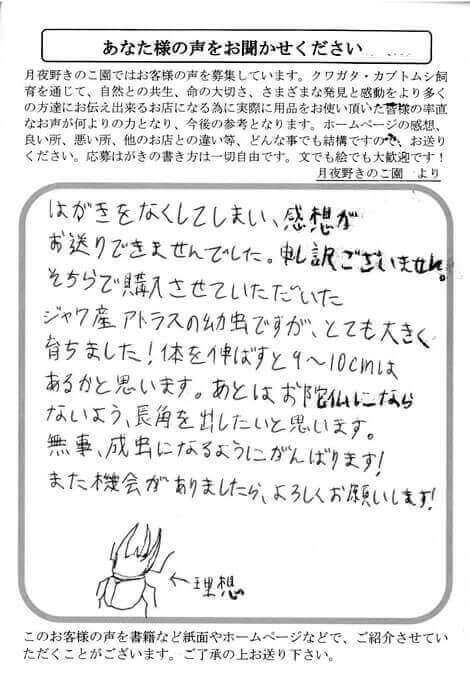 あなた様の声をお聞かせください
月夜野きのこ園ではお客様の声を募集しています。クワガタ・カブトムシ飼
育を通じて、自然との共生、命の大切さ、さまざまな発見と感動をより多く
の方達にお伝え出来るお店になる為に実際に用品をお使い頂いた皆様の率直
なお声が何よりの力となり、今後の参考となります。ホームページの感想、
良い所、悪い所、他のお店との違い等、どんな事でも結構ですので、お送り
ください。応募はがきの書き方は一切自由です。文でも絵でも大歓迎です！
月夜野きのこ園 より
はがきをなくしてしまい、感想が
お送りできませんでした。申し訳ございません。
そちらで購入させていただいた
ジャワ産アトラスの幼虫ですが、とても大きく
育ちました！体を伸ばすと9～10cmは
あるかと思います。あとはお陀仏になら
ないよう、長角を出したいと思います。
無事、成虫になるようにがんばります！
また機会がありましたら、よろしくお願いします！
←理想
このお客様の声を書籍など紙面やホームページなどで、ご紹介させてい
ただくことがございます。ご了承の上お送り下さい。